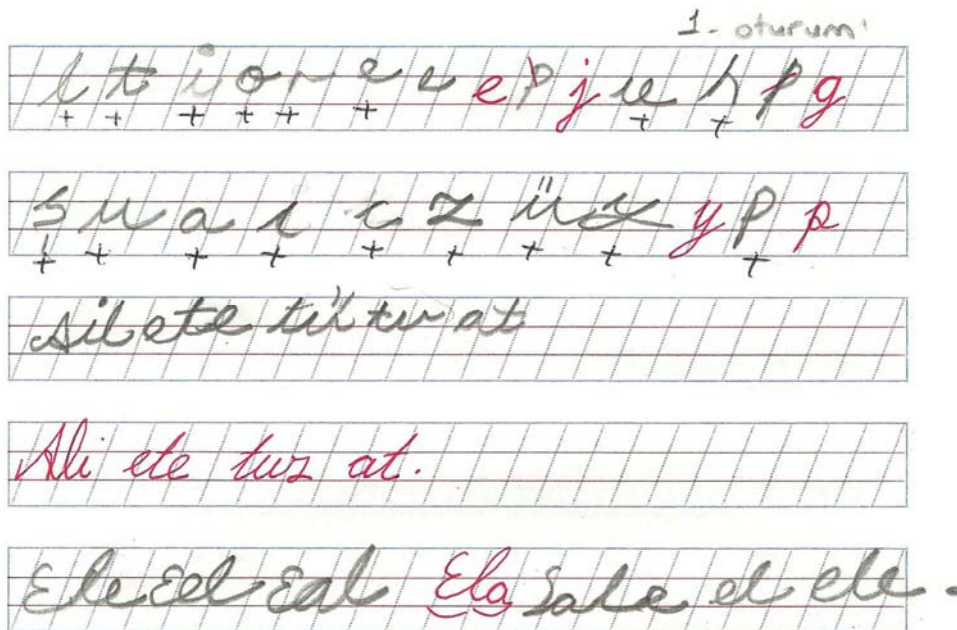 1. oturum
l t i o r e e e p j u h p g
s u a i c z ü y y p p
ete at
Ali ete tuz at.
Ele Eel Eal Ela Sale el ele.